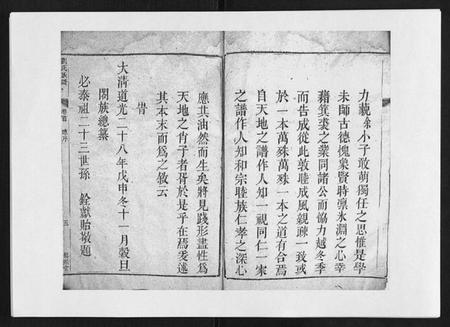 力藐爾小子敢萌獨任之思惟是學
未師古德愧象賢時凜氷淵之心幸
藉箕裘之業同諸公而協力越冬季
而告成從此敦睦成風親疎一致或
於一本萬殊萬殊一本之道有合焉
自天地之譜作人知一視同仁一宋
之譜作人知和宗睦族仁孝之深心
應其油然而生矣將見踐形盡性爲
天地之肖子者胥於是乎在焉爰述
其本末而爲之敘云
旹
大淸道光二十八年戊申冬十一月穀旦
閤族總纂
必泰祖二十三世孫 銓獻貽敬題
氏族譜 卷首 總序 五